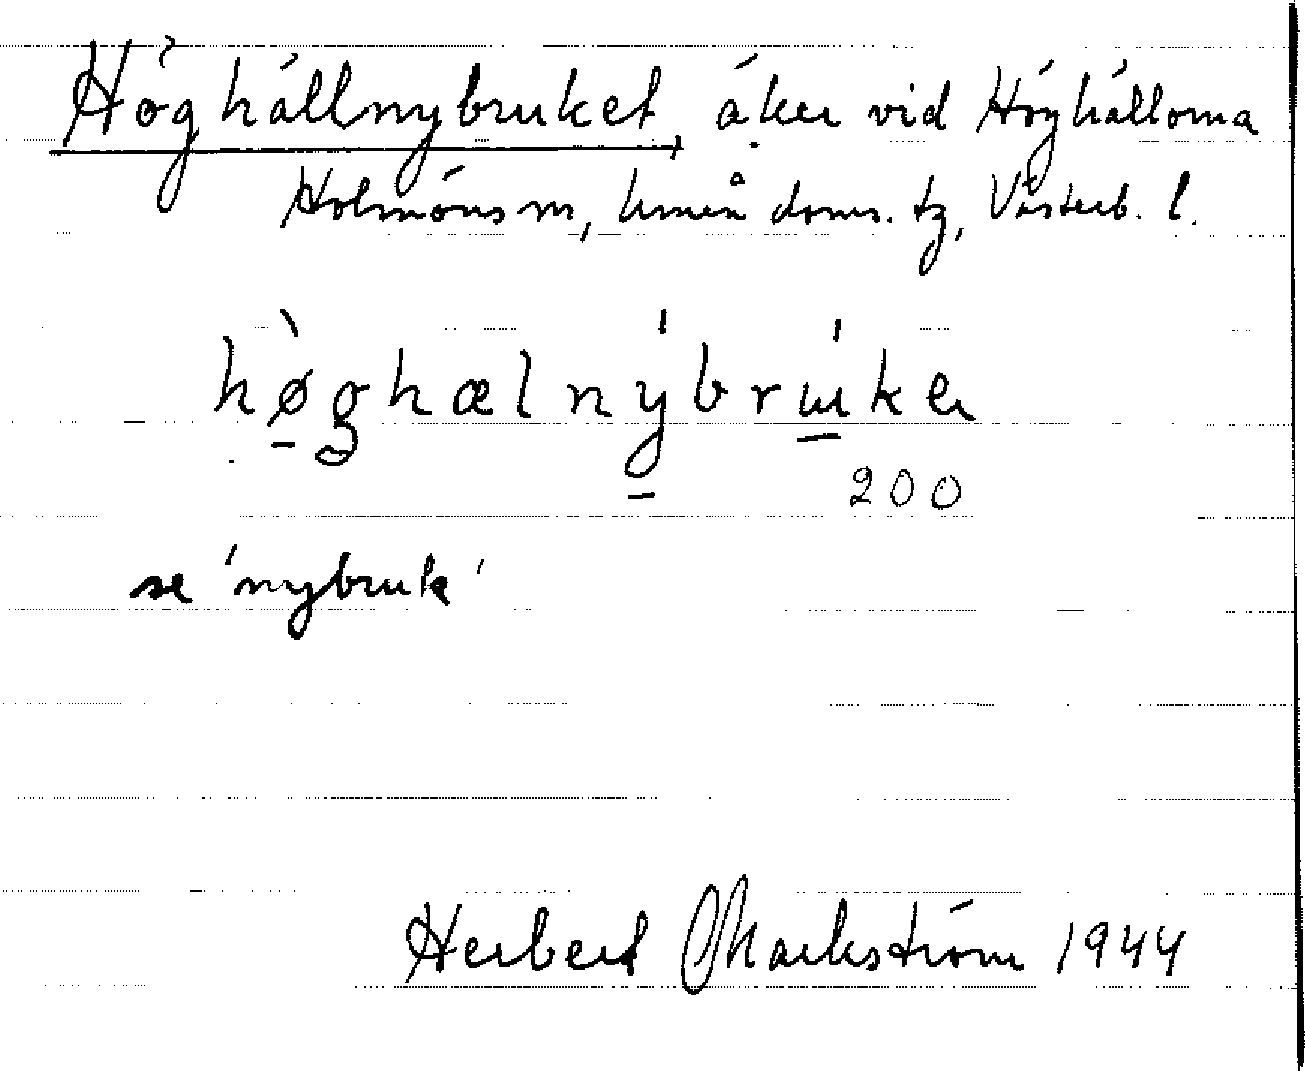 Höghällnybruket, åker vid Höghällorna
Holmöns sn, Umeå doms. tg, Västerb. l.
hø̀ghælnýbrɯ́ke
200
se 'nybruk'
Herbert Markström 1944